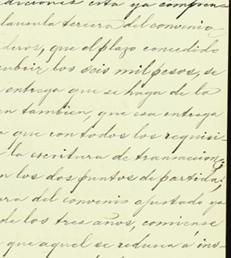 diciones está ya compren
clausula tercera del convenio
dores, que el plazo concedido
cubrir los seis mil pesos, se
entrega que se haga de la
en tambien, que esa entrega
a que con todos los requisi
la escritura de transmision;
n los dos puntos de partida;
ra del convenio ajustado ya
de los tres años, comiense
que aquel se reduzca á ins